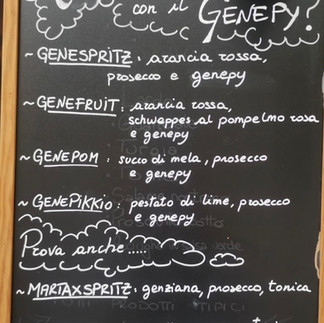 con il GENEPY?
~ GENESPRITZ: arancia rossa,
prosecco e genepy
~ GENEFRUIT: arancia rossa,
schweppes al pompelmo rosa
e genepy
~ GENEPOM: succo di mela, prosecco
e genepy
~ GENEPIKKIO: pestato di lime, prosecco
e genepy
Prova anche.....
~ MARTAXSPRITZ: genziana, prosecco, tonica